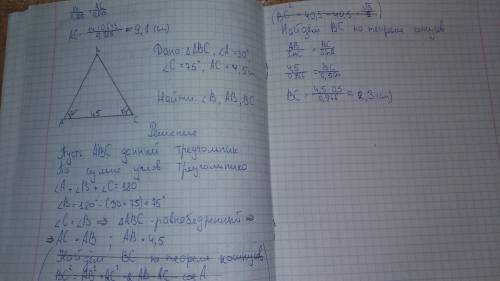 AC = = 9,1 (см)
B
A 4,5 C
Дано: △ABC, ∠A = 30°
∠C = 75°, AC = 4,5 см
Найти: ∠B, AB, BC
Решение
Пусть ABC данный треугольник
По сумме углов треугольника
∠A + ∠B + ∠C = 180°
∠B = 180° - (30 + 75) = 75°
∠C = ∠B ⇒ △ABC - равнобедренный ⇒
⇒ AC = AB ; AB = 4,5
Найдем BC по теореме косинусов
BC² = AB² + AC² - 2 AB · AC · cos A
(BC² = 40,5 - 40,5 · √3/2)
Найдем BC по теореме синусов
AB/sinC = BC/sinA
4,5/0,966 = BC/0,5
BC = 4,5 · 0,5/0,966 = 2,3 (см)